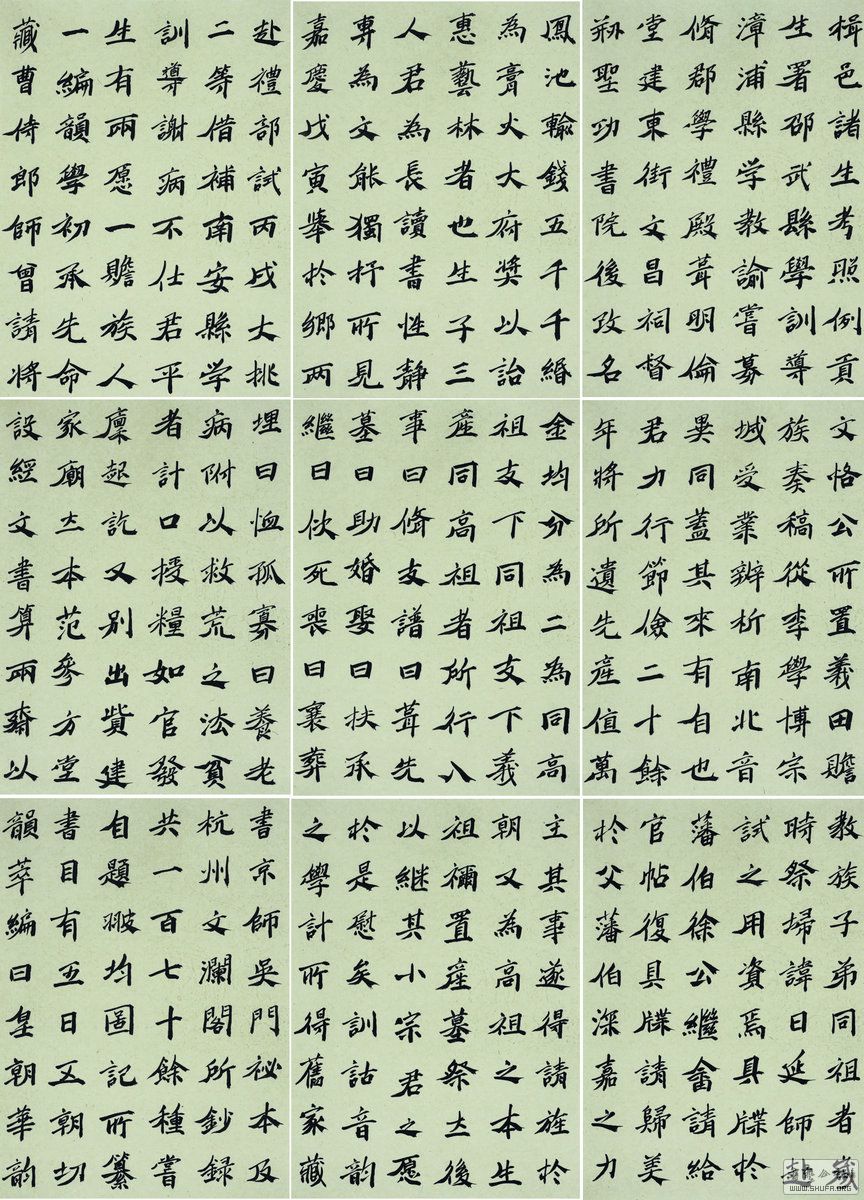 楫邑諸生考照例貢
生署邵武縣學訓導
漳浦縣学教諭嘗募
脩郡學禮殿葺明倫
堂建東街文昌祠督
刱聖功書院後改名
鳳池輸錢五千千緡
為膏火大府奬以詒
惠藝林者也生子三
人君為長讀書性静
專為文能獨抒所見
嘉慶戊寅舉於鄉兩
赴禮部試丙戌大挑
二等借補南安縣学
訓導謝病不仕君平
生有兩愿一贍族人
一編韻學初承先命
藏曹侍郎師曾請將
文恪公所置義田贍
族奏稿從李學博宗
城受業辨析南北音
異同蓋其來有自也
君力行節儉二十餘
年將所遺先産值萬
金均分為二為同高
祖支下同祖支下義
産同高祖者所行八
事曰脩支譜曰葺先
墓曰助婚娶曰扶承
繼曰佽死喪曰襄葬
埋曰恤孤寡曰養老
病附以救荒之法貧
者計口授糧如官發
廩起訖又别出貲建
家廟立本范參方堂
設經文書算兩齋以
教族子弟同祖者歲
時祭埽諱日延師赴
試之用資焉具牒於
藩伯徐公繼畬請給
官帖復具牒請歸美
於父藩伯深嘉之力
主其事遂得請旌於
朝又為高祖之本生
祖禰置産墓祭立後
以継其小宗君之愿
於是慰矣訓詁音韵
之學計所得舊家藏
書京師吳門祕本及
杭州文瀾閣所鈔録
共一百七十餘種嘗
自題均圖記所纂
書目有五曰五朝切
韻萃編曰皇朝華韵
WWW.SHUFA.ORG